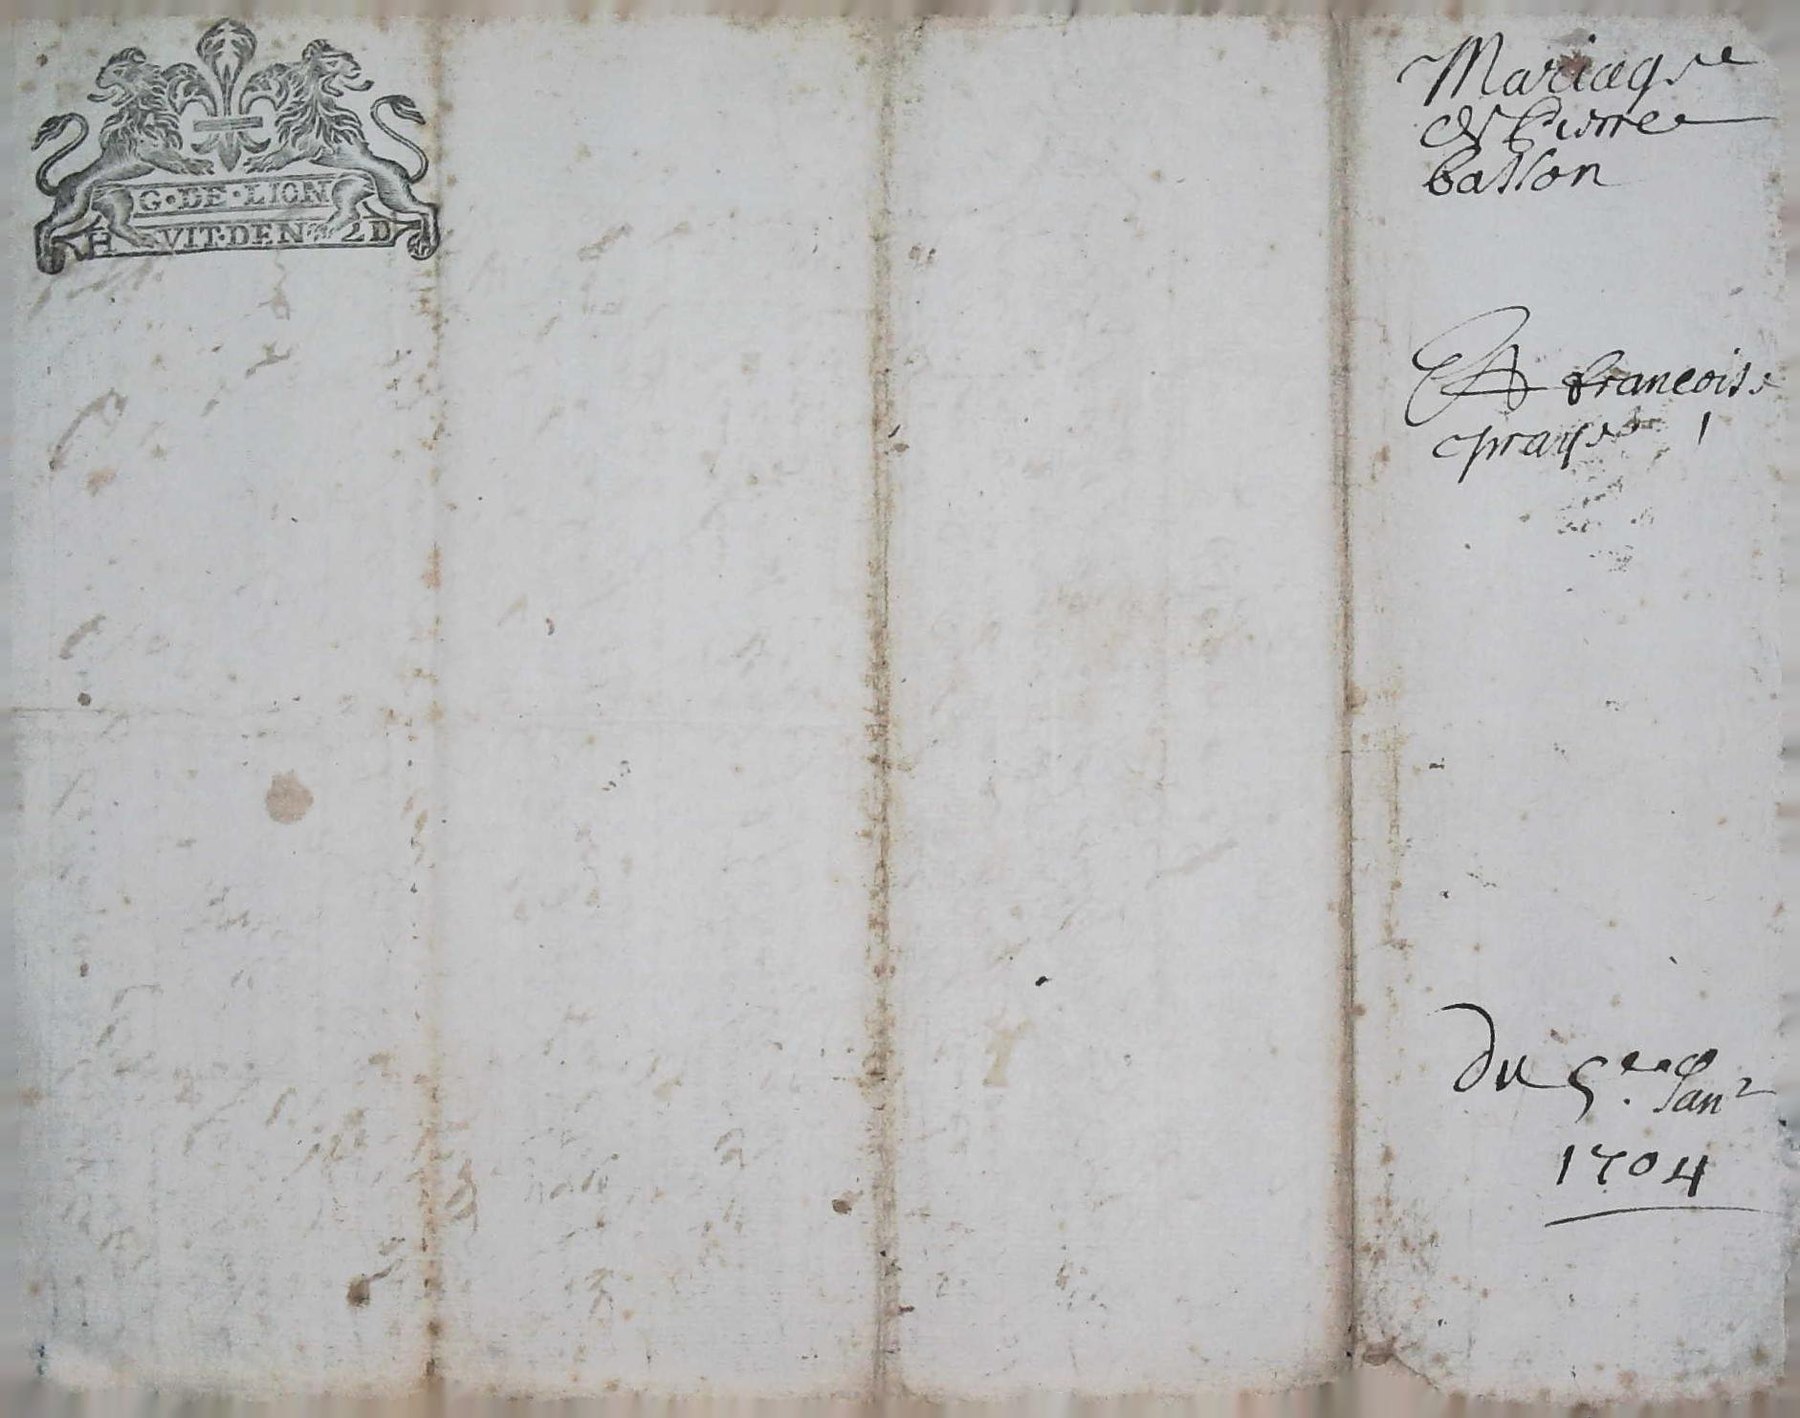 G·DE·LION
H VIT·DEN 2D
Mariage
de Pierre
basson
Et francoise
praye
du 5e Janr
1704